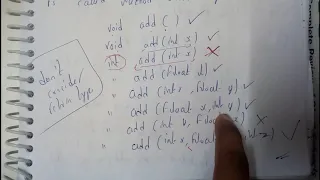 is called
void add ( ) ✓
void add (int x) ✓
int add (int x) ✗
" add (float d) ✓
" add (int x, float y) ✓
" add (float x, int y) ✓
" add (int y, float x) ✗
" add (int x, float int z) ✓
don't
consider
return type